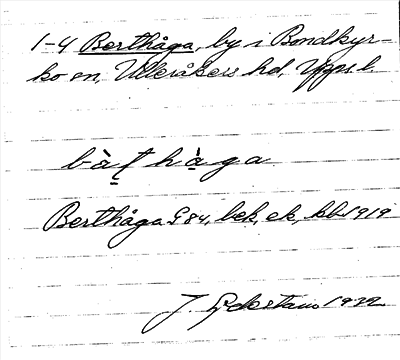 1-4 Berthåga, by i Bondkyr-
ko sn, Ulleråkers hd, Upps. l.
bà̤ṭhà̤ga
Berthåga G 84, bek, ek, kb 1919
J. 1922